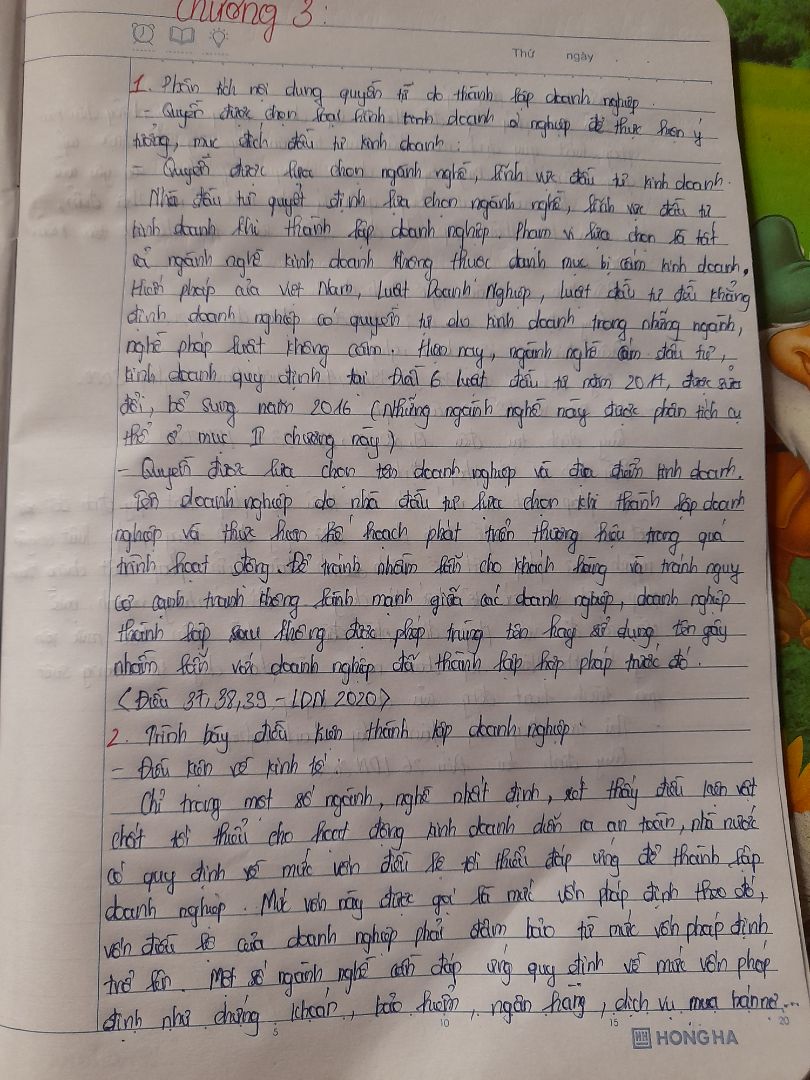 Chương 3:
Thứ ngày
1. Phân tích nội dung quyền tự do thành lập doanh nghiệp.
- Quyền được chọn loại hình kinh doanh nghiệp để thực hiện ý
tưởng, mục đích đầu tư kinh doanh:
- Quyền được lựa chọn ngành nghề, lĩnh vực đầu tư kinh doanh.
Nhà đầu tư quyết định lựa chọn ngành nghề, lĩnh vực đầu tư
kinh doanh khi thành lập doanh nghiệp. Phạm vi lựa chọn là tất
cả ngành nghề kinh doanh không thuộc danh mục bị cấm kinh doanh.
Hiến pháp của Việt Nam, Luật Doanh Nghiệp, luật đầu tư đều khẳng
định doanh nghiệp có quyền tự do kinh doanh trong những ngành,
nghề pháp luật không cấm. Hiện nay, ngành nghề cấm đầu tư,
kinh doanh quy định tại Điều 6 luật đầu tư năm 2014, được sửa
đổi, bổ sung năm 2016 (Những ngành nghề này được phân tích cụ
thể ở mục II chương này)
- Quyền được lựa chọn tên doanh nghiệp và địa điểm kinh doanh.
Tên doanh nghiệp do nhà đầu tư lựa chọn khi thành lập doanh
nghiệp và thực hiện kế hoạch phát triển thương hiệu trong quá
trình hoạt động. Để tránh nhầm lẫn cho khách hàng và tránh nguy
cơ cạnh tranh không lành mạnh giữa các doanh nghiệp, doanh nghiệp
thành lập sau không được phép trùng tên hay sử dụng tên gây
nhầm lẫn với doanh nghiệp đã thành lập hợp pháp trước đó.
<Điều 37, 38, 39 - LDN 2020>
2. Trình bày điều kiện thành lập doanh nghiệp.
- Điều kiện về kinh tế:
Chỉ trong một số ngành, nghề nhất định, xét thấy điều kiện vật
chất tối thiểu cho hoạt động kinh doanh diễn ra an toàn, nhà nước
có quy định về mức vốn điều lệ tối thiểu đáp ứng để thành lập
doanh nghiệp. Mức vốn này được gọi là mức vốn pháp định theo đó,
vốn điều lệ của doanh nghiệp phải đảm bảo từ mức vốn pháp định
trở lên. Một số ngành nghề cần đáp ứng quy định về mức vốn pháp
định như chứng khoán, bảo hiểm, ngân hàng, dịch vụ mua bán nợ,...
5 10 15 20
HONG HA